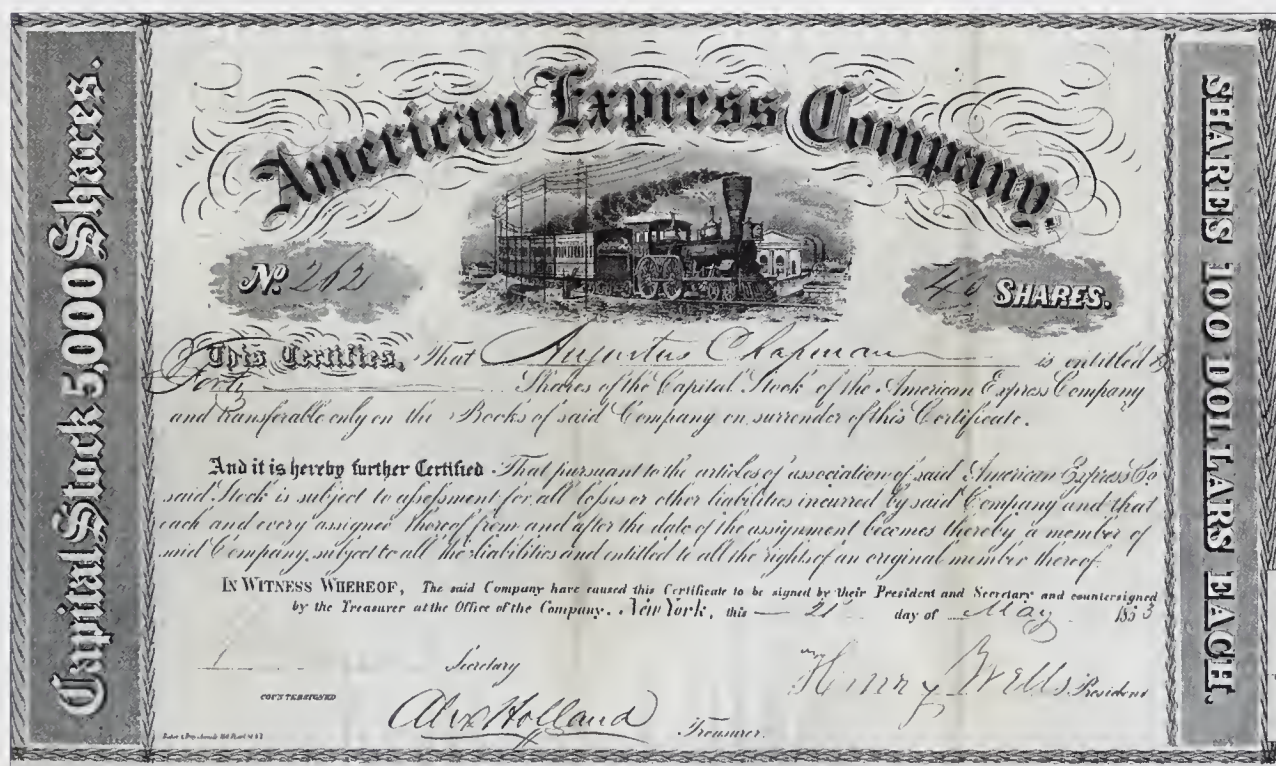 Capital Stock 5,000 Shares.
American Express Company.
No. 262
40 SHARES.
This Certifies, That Augustus Chapman is entitled to
Forty Shares of the Capital Stock of the American Express Company
and transferable only on the Books of said Company on surrender of this Certificate.
And it is hereby further Certified That pursuant to the articles of association of said American Express Co
said Stock is subject to assessment for all losses or other liabilities incurred by said Company and that
each and every assignee thereof from and after the date of the assignment becomes thereby a member of
said Company, subject to all the liabilities and entitled to all the rights of an original member thereof.
IN WITNESS WHEREOF, The said Company have caused this Certificate to be signed by their President and Secretary and countersigned
by the Treasurer at the Office of the Company. New York, this 21 day of May 1853
Secretary
Henry Wells President
COUNTERSIGNED
Alex Holland Treasurer.
SHARES 100 DOLLARS EACH.